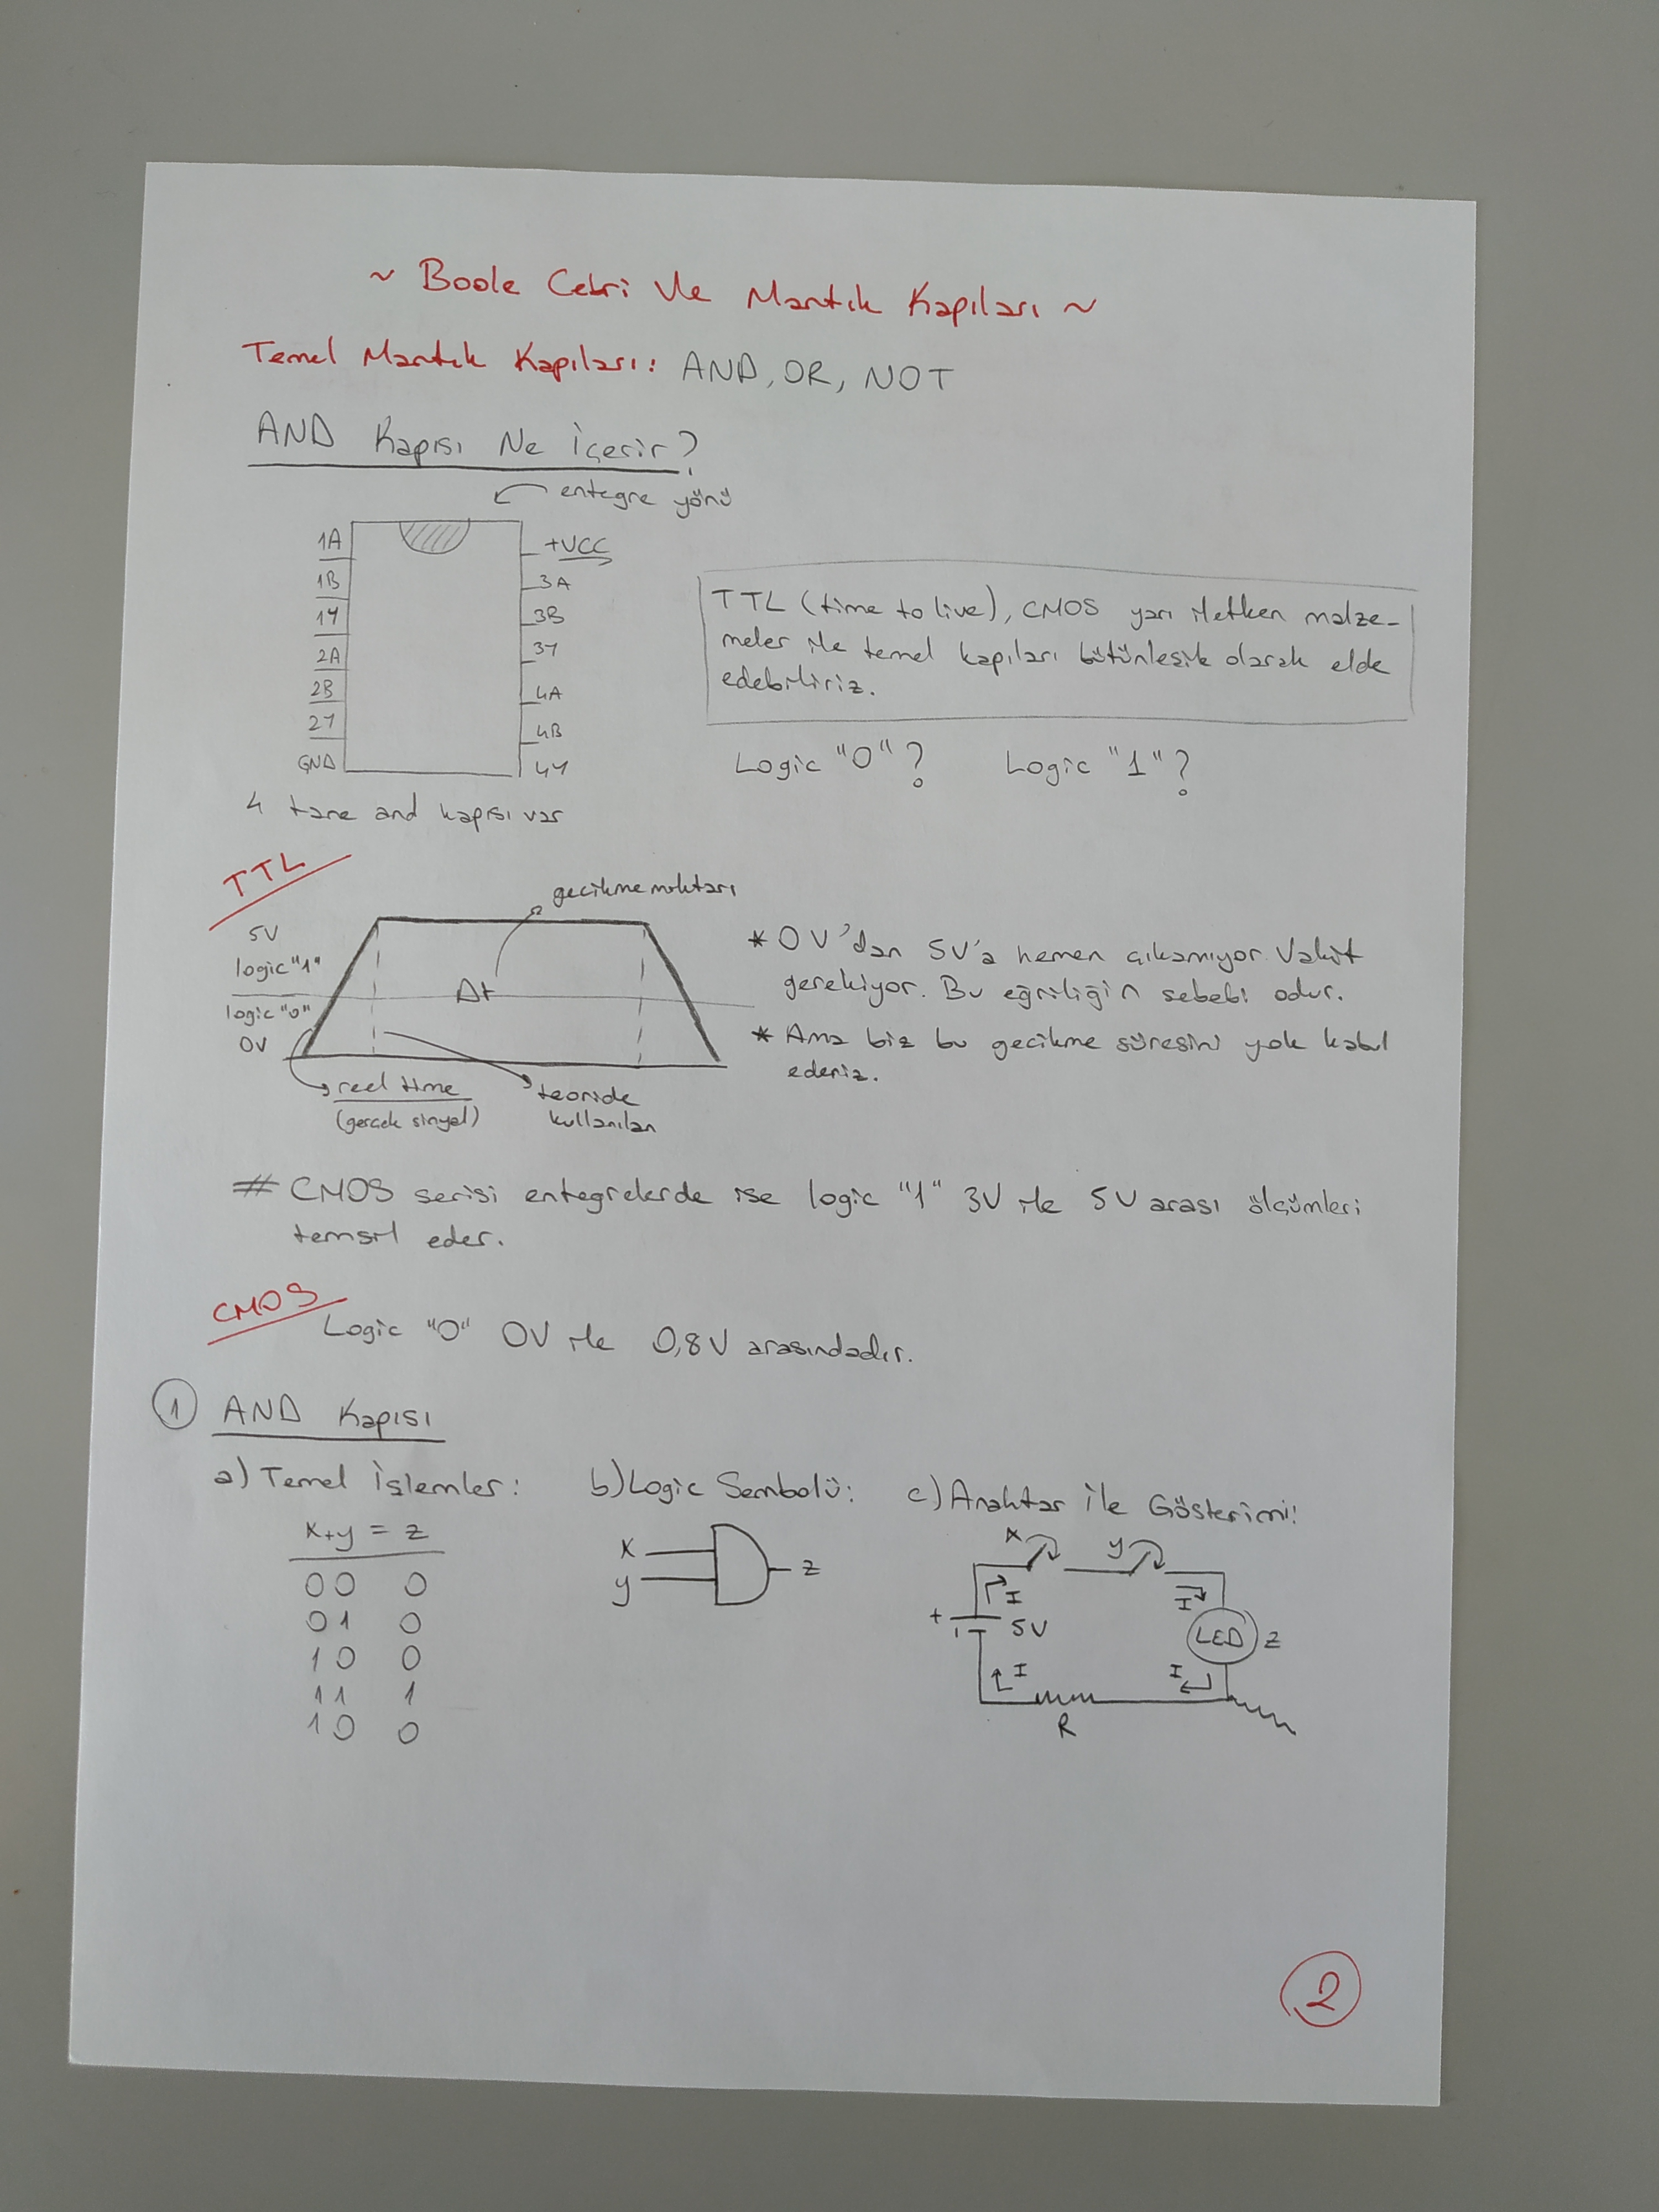 ~ Boole Cebri Ve Mantık Kapıları ~
Temel Mantık Kapıları: AND, OR, NOT
AND Kapısı Ne İçerir?
entegre yönü
1A
1B
1Y
2A
2B
2Y
GND
+VCC
3A
3B
3Y
4A
4B
4Y
TTL (time to live), CMOS yarı iletken malze-
meler ile temel kapıları bütünleşik olarak elde
edebiliriz.
4 tane and kapısı var
Logic "0"? Logic "1"?
TTL
5V
logic "1"
logic "0"
0V
Δt
gecikme miktarı
real time
(gerçek sinyal)
teoride
kullanılan
* 0V'dan 5V'a hemen çıkamıyor. Vakit
gerekiyor. Bu eğriliğin sebebi odur.
* Ama biz bu gecikme süresini yok kabul
ederiz.
# CMOS serisi entegrelerde ise logic "1" 3V ile 5V arası ölçümleri
temsil eder.
CMOS
Logic "0" 0V ile 0,8V arasındadır.
1 AND Kapısı
a) Temel İşlemler: b) Logic Sembolü: c) Anahtar ile Gösterimi:
x+y=z
0 0 0
0 1 0
1 0 0
1 1 1
1 0 0
x
y
z
x
y
+
-
5V
I
I
I
I
R
LED
z
2